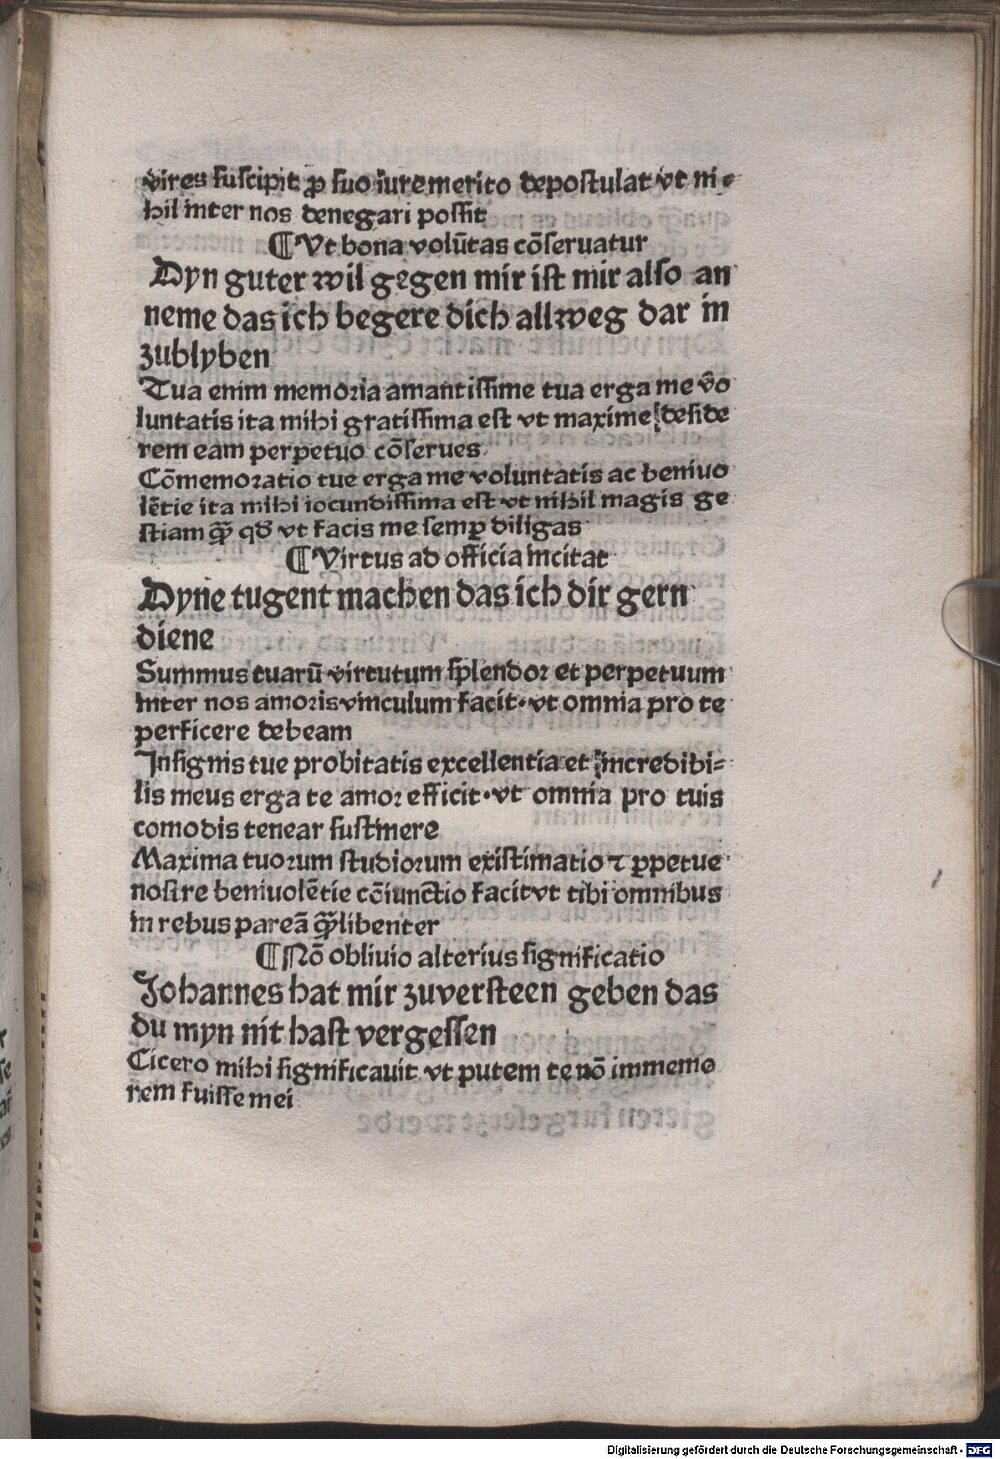 vires suscipit ꝓ suo iure merito depostulat vt ni-
hil inter nos denegari possit
¶Vt bona volūtas cōseruatur
Dyn guter wil gegen mir ist mir also an
neme das ich begere dich allweg dar in
zublyben
Tua enim memoria amantissime tua erga me vo
luntatis ita mihi gratissima est vt maxime deside
rem eam perpetuo cōserues
Cōmemoratio tue erga me voluntatis ac beniuo
lētie ita mihi iocundissima est vt nihil magis ge
stiam qua̅ qđ vt facis me semꝑ diligas
¶Virtus ad officia incitat
Dyne tugent machen das ich dir gern
diene
Summus tuarū virtutum splendor et perpetuum
inter nos amoris vinculum facit·vt omnia pro te
perficere debeam
Insignis tue probitatis excellentia et incredibi-
lis meus erga te amor efficit·vt omnia pro tuis
comodis tenear sustinere
Maxima tuorum studiorum existimatio ⁊ ꝑpetue
nostre beniuolētie cōiunctio facit vt tibi omnibus
in rebus pareā qua̅libenter
¶Nō obliuio alterius significatio
Johannes hat mir zuversteen geben das
du myn nit hast vergessen
Cicero mihi significauit vt putem te nō immemo
rem fuisse mei
Digitalisierung gefördert durch die Deutsche Forschungsgemeinschaft - DFG